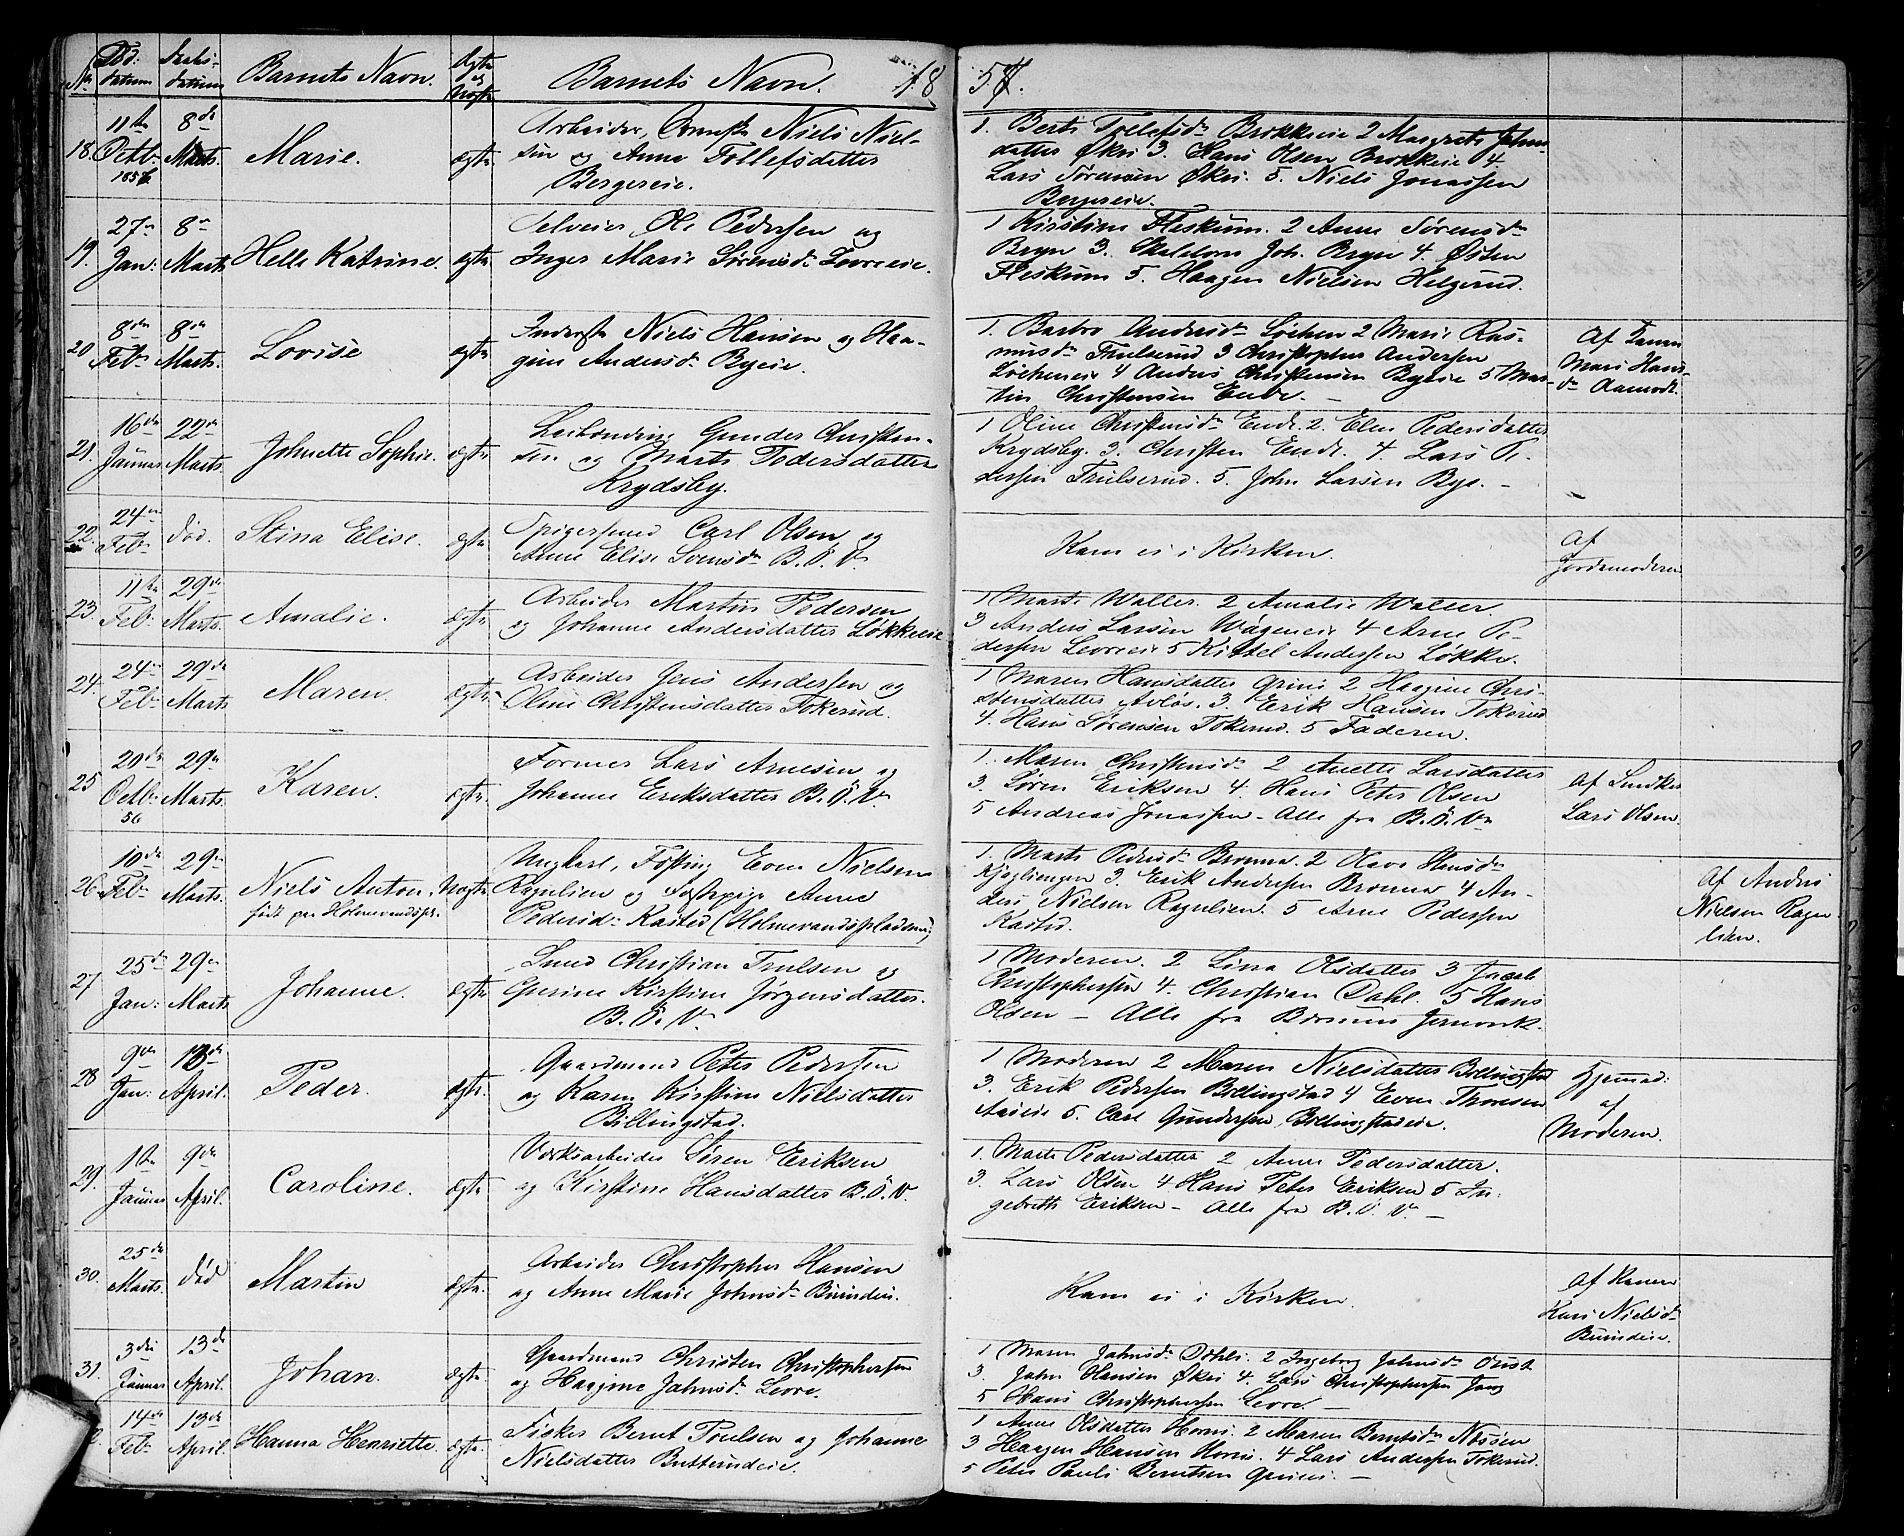 No. Fød. datum Daabs-datum Barnets Navn. Ægte eg. Uægte Barnets Navn. 18 57.
18. 11te Octb. 1856 8de Marts. Marie. ægte
Arbeider, Niels Niel-
sen og Anne Tollefsdatter
Bergereie.
1. Berte Tollefsd. Brokkeie 2 Margrete Johns-
datter Økri 3. Hans Olsen Brokkeie 4.
Lars Sørensen Økri. 5. Niels Jonassen
Bergereie.
19. 27de Jan: 8de Marts Helle Katrine. ægte
Selveier Ole Pedersen og
Inger Marie Sørensd. Levreeie.
1 Kirstine Fleskum. 2 Anne Sørensd.
Bryn 3. Joh. Bryn 4. Østen
Fleskum 5. Haagen Nielsen Helgerud.
20 8de Feb. 8de Marts. Lovise ægte
Inderste Niels Hansen og Haa-
gine Andersd. Byeie.
1. Barbro Andersd. Løken 2 Marie Ras-
musd. Trulserud 3 Christopher Andersen
Løkeneie 4 Anders Christensen Byeie 5 Mar-
tin Christensen Ende. –
Af
Mari Hans-
d. Aamodt.
21. 16de Januar 22de Marts. Johnette Sophie. ægte
Leilending Gunder Christen-
sen og Marte Pedersdatter
Krydsby.
1 Oline Christensd. Ende. 2. Elen Pedersdatter
Krydsby. 3. Christen Ende. 4. Lars Pe-
dersen Trulserud. 5. John Larsen Bye. –
22. 24de Feb. død. Stina Elise. ægte
Spigersmed Carl Olsen og
Anne Elise Svensd. B. J. V.
Kom ei i Kirken.
Af
Jordemoderen
23. 11te Feb. 29de Marts. Amalie. ægte
Arbeider Martin Pedersen
og Johanne Andersdatter Løkkeeie
1 Marte Waller. 2 Amalie Waller
3 Anders Larsen Vøgeneie 4 Arne Pe-
dersen Levreeie 5 Kittel Andersen Løkke.
24. 24de Feb. 29de Marts Maren ægte
Arbeider Jens Andersen og
Oline Christensdatter Tokerud.
1 Maren Hansdatter Grini 2 Haagine Chri-
stensdatter Avløs. 3. Erik Hansen Tokerud
4. Hans Sørensen Tokerud. 5 Faderen.
25 20de Octb. 56 29de Marts. Karen. ægte.
Former Lars Arnesen og
Johanne Eriksdatter B. J. V.
1. Maren Christensd. 2 Anette Larsdatter
3. Søren Eriksen 4. Hans Peter Olsen
5 Andreas Jonassen – Alle fra B. J. V.
Af Snedker
Lars Olsen.
26. 10de Feb. 29de Marts. Niels Anton. Uægte
født paa Holmevandspl.
Ungkarl, Even Nielsen
Rognlien og Pige Anne
Pedersd. Kasted (Holmevandspladsen)
1. Marte Pedersd. Brenna. 2 Olava Hansd.
Kjaglingen 3. Erik Andersen Brenna 4 An-
ders Nielsen Rognlien. 5 Arne Pedersen
Kasted.
Af Anders
Nielsen Rogn-
lien.
27. 25de Jan: 29de Marts Johanne. ægte
Smed Christian Trulsen og
Grine Kirstine Jørgensdatter.
B. J. V.
1 Moderen. 2 Lina Olsdatter 3 Jacob
Christophersen 4. Christian Dahl. 5 Hans
Olsen – Alle fra Bærums Jernværk.
28 9de Jan: 13de April. Peder. ægte.
Gaardmand Peter Pedersen
og Karen Kirstine Nielsdatter
Billingstad.
1 Moderen 2 Maren Nielsdatter Billingstad
3. Erik Pedersen Billingstad 4 Even Thoresen
Aaseie 5. Carl Gundersen Billingstadeie.
Hjemmed:
af
Moderen.
29. 1te Januar 9de April. Caroline. ægte
Værksarbeider Søren Eriksen
og Kirstine Hansdatter B. J. V.
1. Marte Pedersdatter 2 Anne Pedersdatter.
3. Lars Olsen 4 Hans Peter Eriksen 5 In-
gebreth Eriksen – Alle fra B. J. V. –
30. 25de Marts død Martin ægte.
Arbeider Christopher Hansen
og Anne Marie Johnsd. Burudeie.
Kom ei i Kirken.
Af Konen
Kari Nielsd.
Burudeie.
31. 3die Januar 13de April. Johan. ægte.
Gaardmand Christen Christophersen
og Haagine Johnsd. Levre.
1 Maren Johnsd. Dahli. 2 Ingeborg Johnsd.
3. John Hansen Økri 4. Lars Christophersen Jong
5 Hans Christophersen Levre. –
14de Feb. 13de April. Hanna Henriette. ægte.
Fisker Bernt Poulsen og Johanne
Nielsdatter Butterudeie.
1 Anne Olsdatter Horni. 2 Maren Berntsd. Nissen
3 Haagen Hansen Horni. 4 Lars Andersen Tokerud.
5 Peter Pauli Berntsen Grini. –